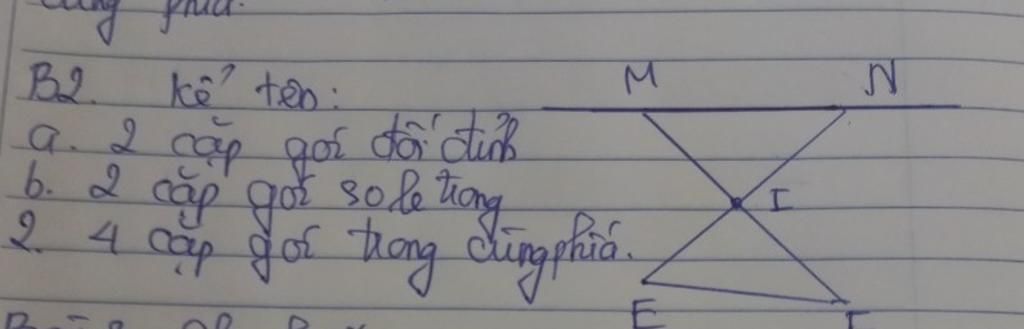 cùng phía.
B2. Kể tên:
a. 2 cặp góc đối đỉnh
b. 2 cặp góc so le trong
2. 4 cặp góc trong cùng phía.
M N
I
E